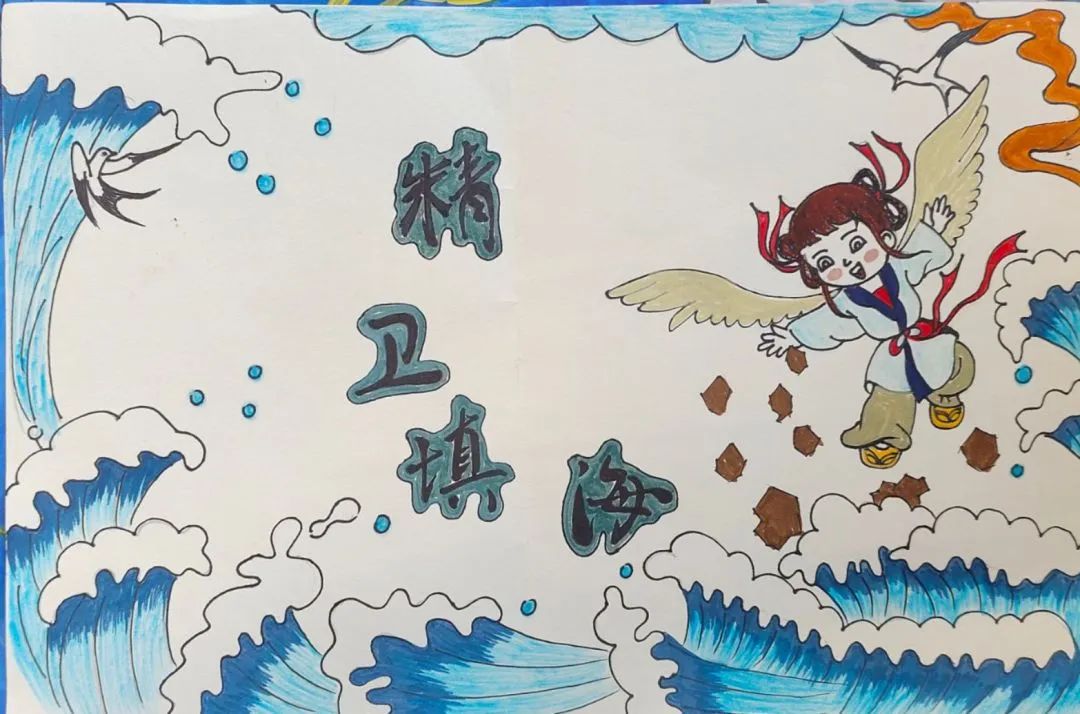 精卫填海